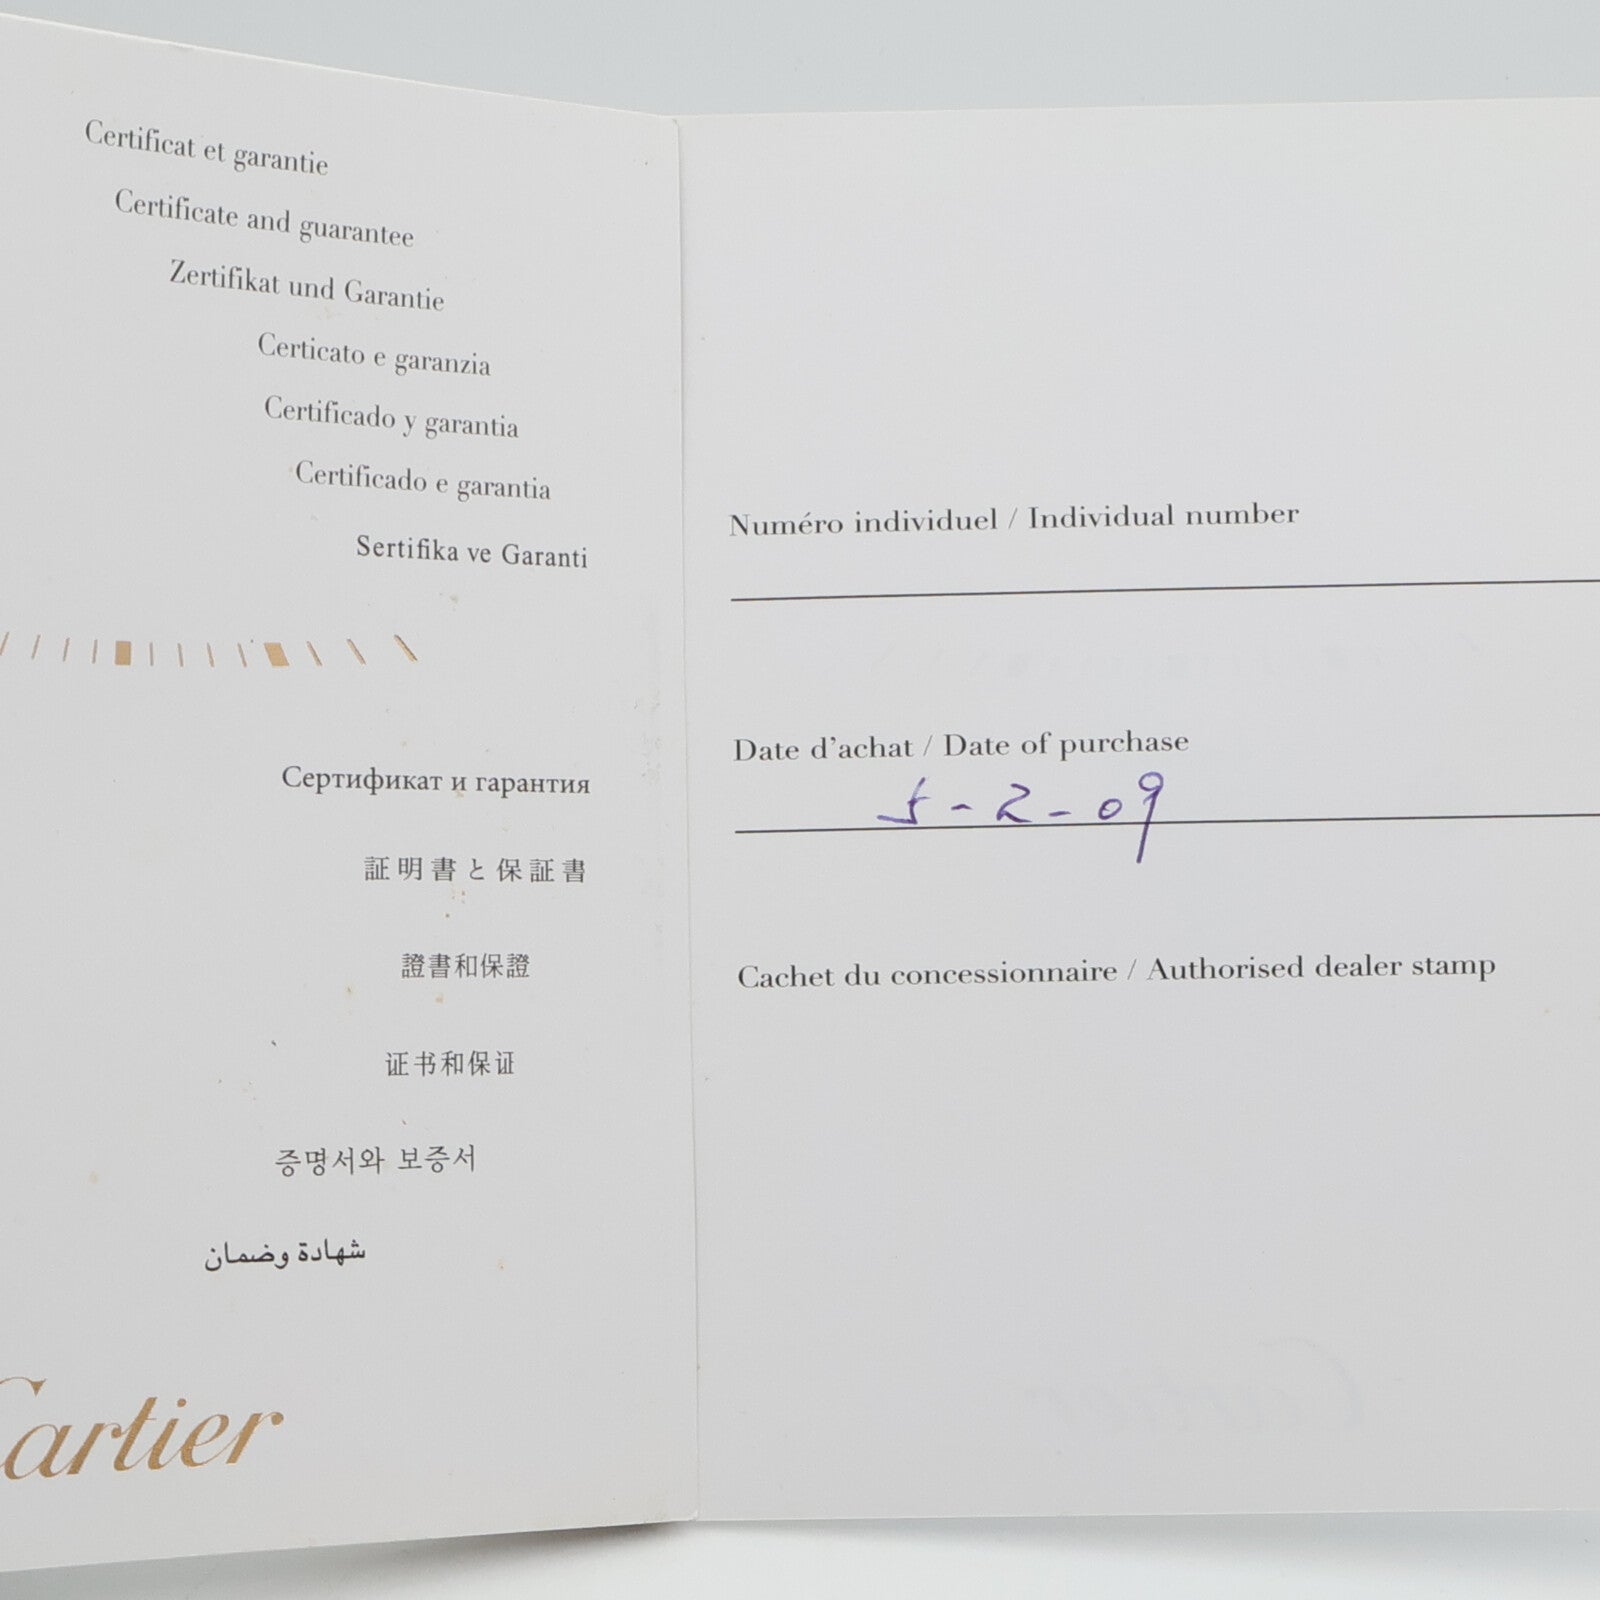 Certificat et garantie
Certificate and guarantee
Zertifikat und Garantie
Certicato e garanzia
Certificado y garantia
Certificado e garantia
Sertifika ve Garanti
Сертификат и гарантия
証明書と保証書
證書和保證
证书和保证
증명서와 보증서
شهادة وضمان
Cartier
Numéro individuel / Individual number
Date d'achat / Date of purchase
5-2-09
Cachet du concessionnaire / Authorised dealer stamp